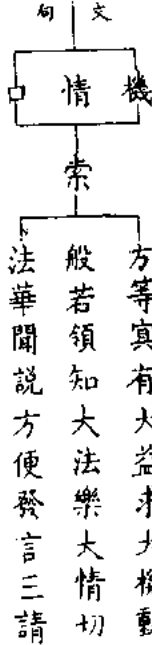 文句
機情口
索
方等冥有大益求大機動
般若領知大法樂大情切
法華聞說方便發言三請